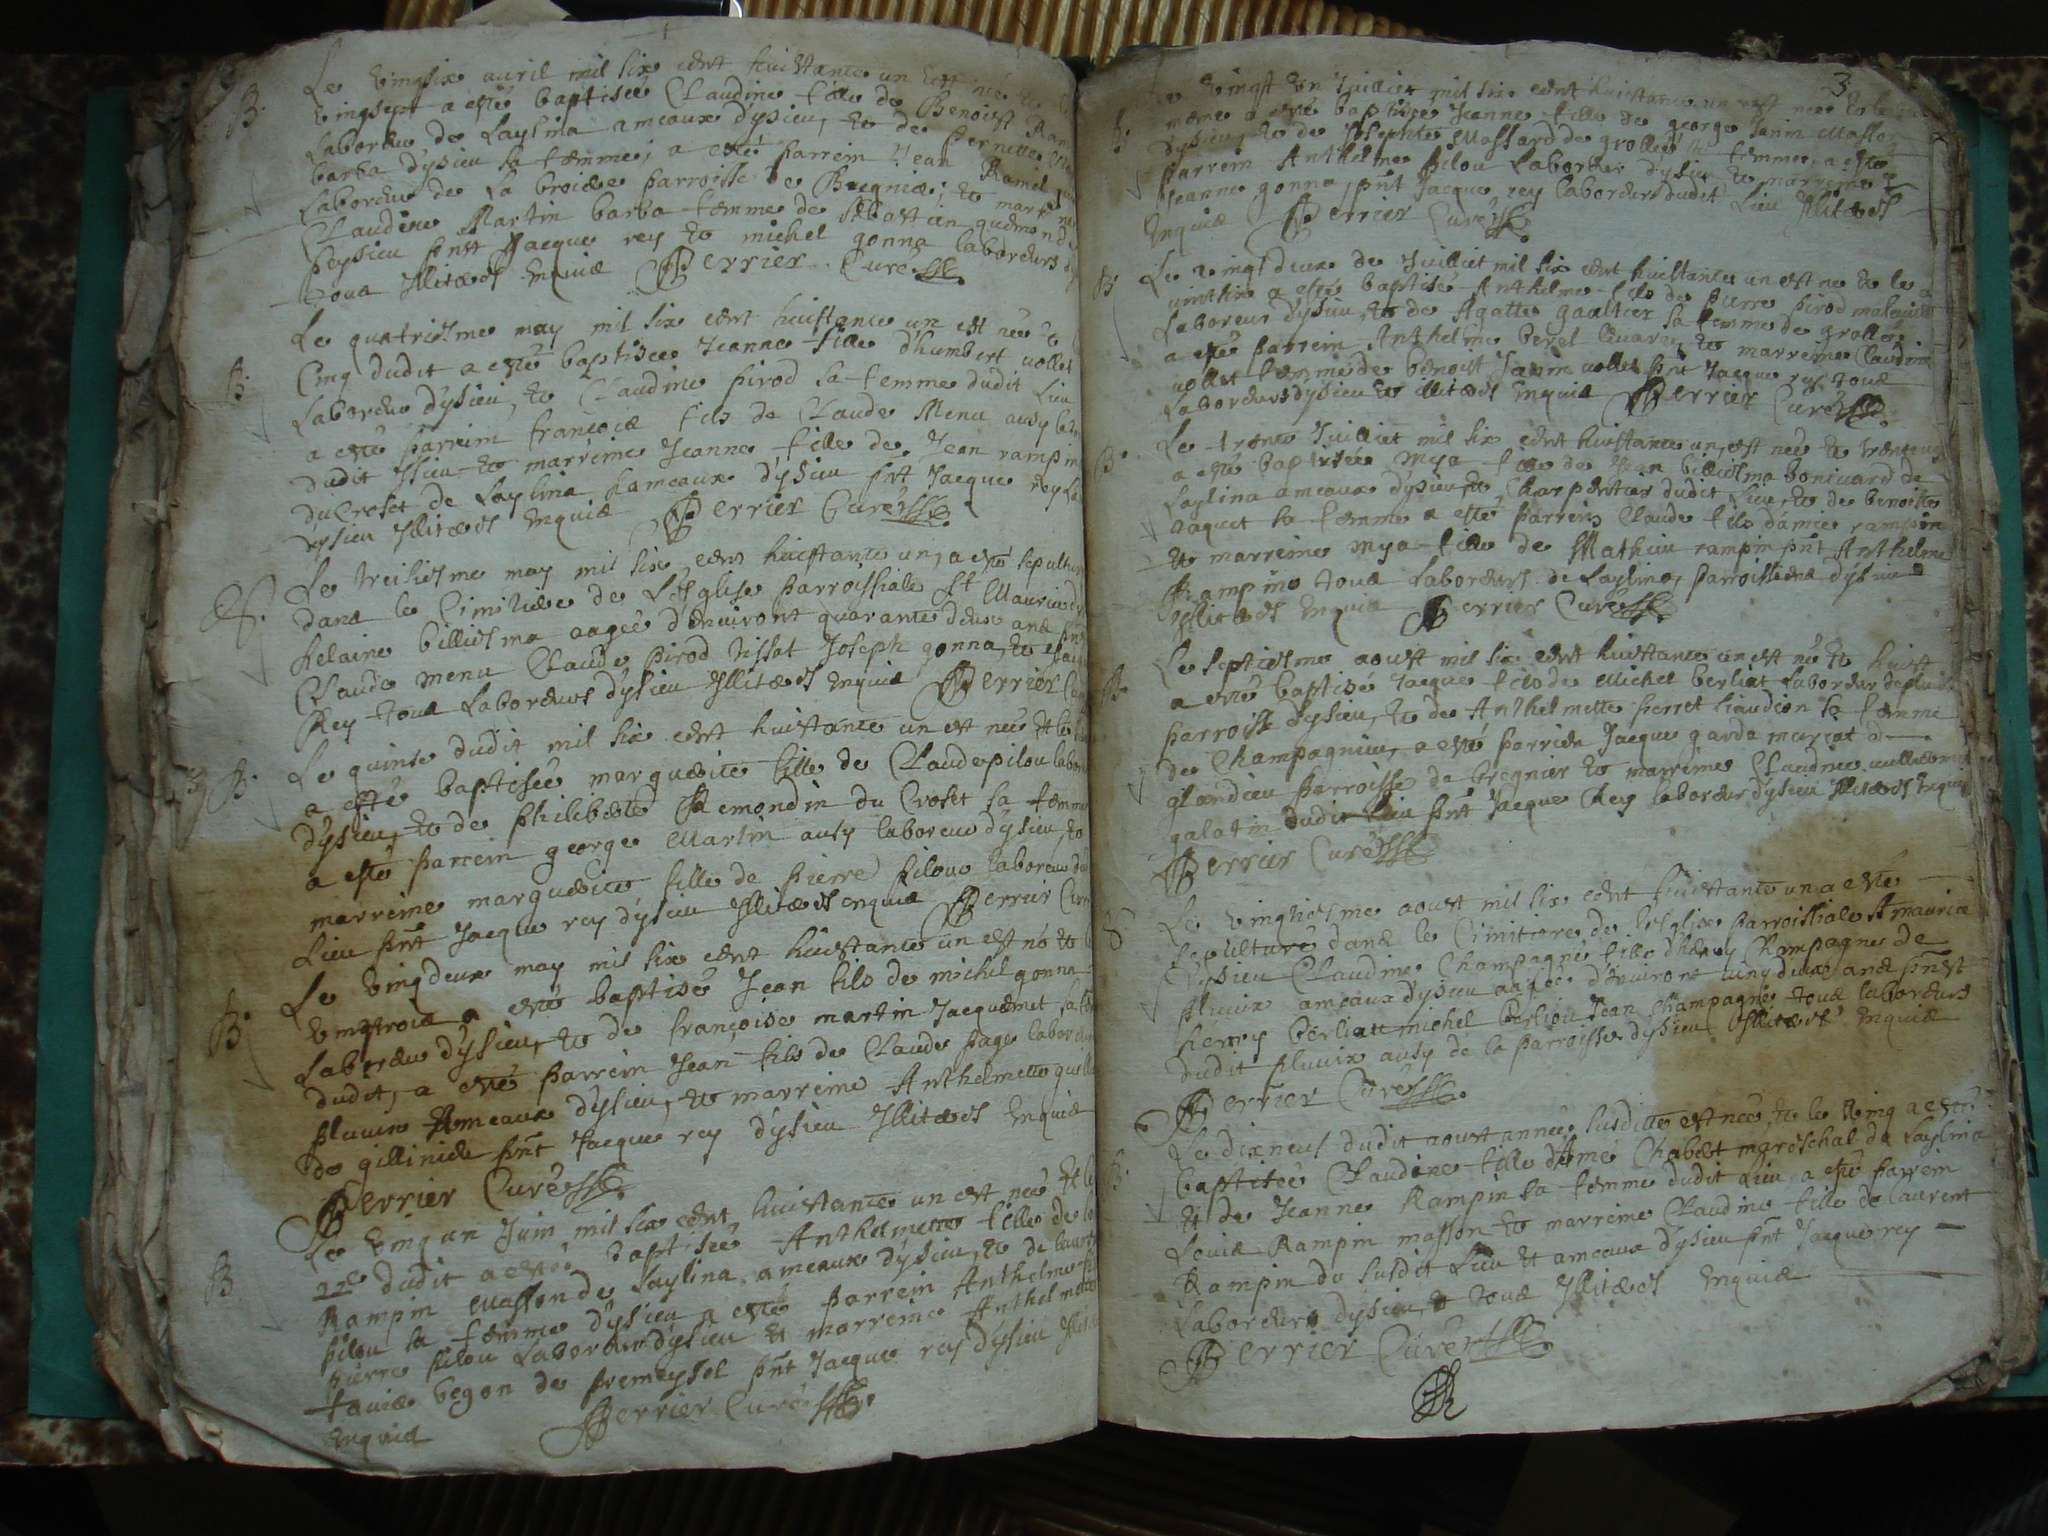 B. Le vingsix auril mil six cent huistante un est née et
vingsept a esté baptisée Claudine fille de Benoist Ram
Laboreur de Laylina ameaux dysieu, et de Pernette
barba dysieu sa femme; a esté parrein Jean Ramel
Laboreur de La broisse parroisse de Bregnié; et marreine
Claudine Martin barba femme de Sebastien guemond
Peysieu pnst Jacque rey et michel gonna laboreurs d
tous Illiterés enquis Perrier Curé
B. Le quatriesme may mil six cent huistante un est née
Cinq dudit a esté baptisée Jeanne fille d'humbert uollet
Laboreur dysieu, et Claudine pirod sa femme dudit Lieu
a esté parrein françois fils de Claude Menu ausy
dudit ysieu et marreine Jeanne fille de Jean rampin
du Croset de Laylina hameaux dysieu pnt Jacque Rey La
dysieu Illiterés enquis Perrier Curé
S. Le treisiesme may mil six cent huistante un, a esté sepultur
dans le Cimitiere de L'Esglise parroissiale St Mauris d
helaine billiesma aagée d'enuiront quarante deux ans pnt
Claude menu Claude pirod tissot Joseph gonna, et Jacq
Rey tous Laboreurs dysieu Illiterés enquis Perrier Cur
B. Le quinse dudit mil six cent huistante un est née et le
a esté baptisée marguerite fille de Claude pilou labor
dysieu, et de philiberte Remondin du Croset sa femme
a esté parrein george Martin ausy laboreur dysieu, et
marreine marguerite fille de pierre pilou laboreur du
Lieu pnt Jacque rey dysieu Illiterés enquis Perrier Cur
B. Le vingdeux may mil six cent huistante un est né et le
vingtrois a esté baptisé Jean fils de michel gonna
Laboreur dysieu, et de françoise martin Jacquemet sa fem
dudit, a esté parrein Jean fils de Claude page laboreur
pluuis Ameaux dysieu, et marreine Anthelmette
de gillinieu pnt Jacque rey dysieu Illiterés enquis
Perrier Curé
B Le vingun Juin mil six cent huistante un est née et le
22e dudit a esté baptisée Anthelmette fille de
Rampin Masson de Laylina ameaux dysieu, et de
pilou sa femme dysieu a esté parrein Anthelme
pierre pilou Laboreur dysieu et marreine Anthelmette
begon de premeysel pnt Jacque rey dysieu Illit
enquis Perrier Curé
3
B. Le vingt un Juilliet mil six cent huistante un est née et le
mesme a esté baptisée Jeanne fille de george Janin Masson
dysieu, et de Josephte Massard de grollée sa femme, a esté
parrein Anthelme pilou Laboreur dysieu et marreine
Jeanne gonna, pnt Jacque rey laboreurs dudit Lieu Illiterés
enquis Perrier Curé
B. Le vingtdeux de Juilliet mil six cent huistante un est né et le
uintsix a esté baptisé Anthelme fils de pierre pirod
Laboreur dysieu et de Agatte gaultier sa femme de grollée
a esté parrein Anthelme berel et marreine Claudine
uollet femme de benoist Janin uollet pnt Jacque rey tous
Laboreurs dysieu et illiterés enquis Perrier Curé
B. Le trente Juilliet mil six cent huistante un, est née et trenteun
a esté baptisée mya fille de Jean billiesma boniuard de
Laylina ameaux dysieu, et Charpentier dudit Lieu, et de benoitte
aaquet sa femme a esté parreins Claude fils d'amee rampin
et marreine mya fille de Mathieu rampin pnt Anthelme
Rampins tous Laboreurs de Laylina, parroissiens dysieu
Illiterés enquis Perrier Curé
B. Le septiesme aoust mil six cent huistante un est né et huist
a esté baptisé Jacque fils de Michel berliat Laboreur de pluuis
parroisse dysieu, et de Anthelmette pierret liaudion sa femme
de Champagnieu, a esté parrein Jacque garda marcat d
glandieu parroisse de bregnier et marreine Claudine
galatin dudit Lieu pnt Jacque Rey laboreur dysieu Illiterés enquis
Perrier Curé
S Le vingtiesme aoust mil six cent huistante un a esté
sepulturé dans le Cimitiere de l'Esglise parroissiale St mauris
dysieu Claudine Champagne fille d'henry Champagne de
pluuix ameaux dysieu aagée d'enuiront ans pnt
henry berliat michel berliou Jean Champagne tous laboreurs
dudit pluuix ausy de la parroisse dysieu Illiterés enquis
Perrier Curé
B. Le dixneuf dudit aoust année susditte est née, et le ving a esté
baptisée Claudine fille d'Amé Chabert mareschal de Laylina
et de Jeanne Rampin sa femme dudit Lieu a esté parrein
Louis Rampin masson et marreine Claudine fille de laurent
Rampin du susdit Lieu et ameaux dysieu pnt Jacque rey
Laboreurs dysieu, et tous Illiterés enquis
Perrier Curé